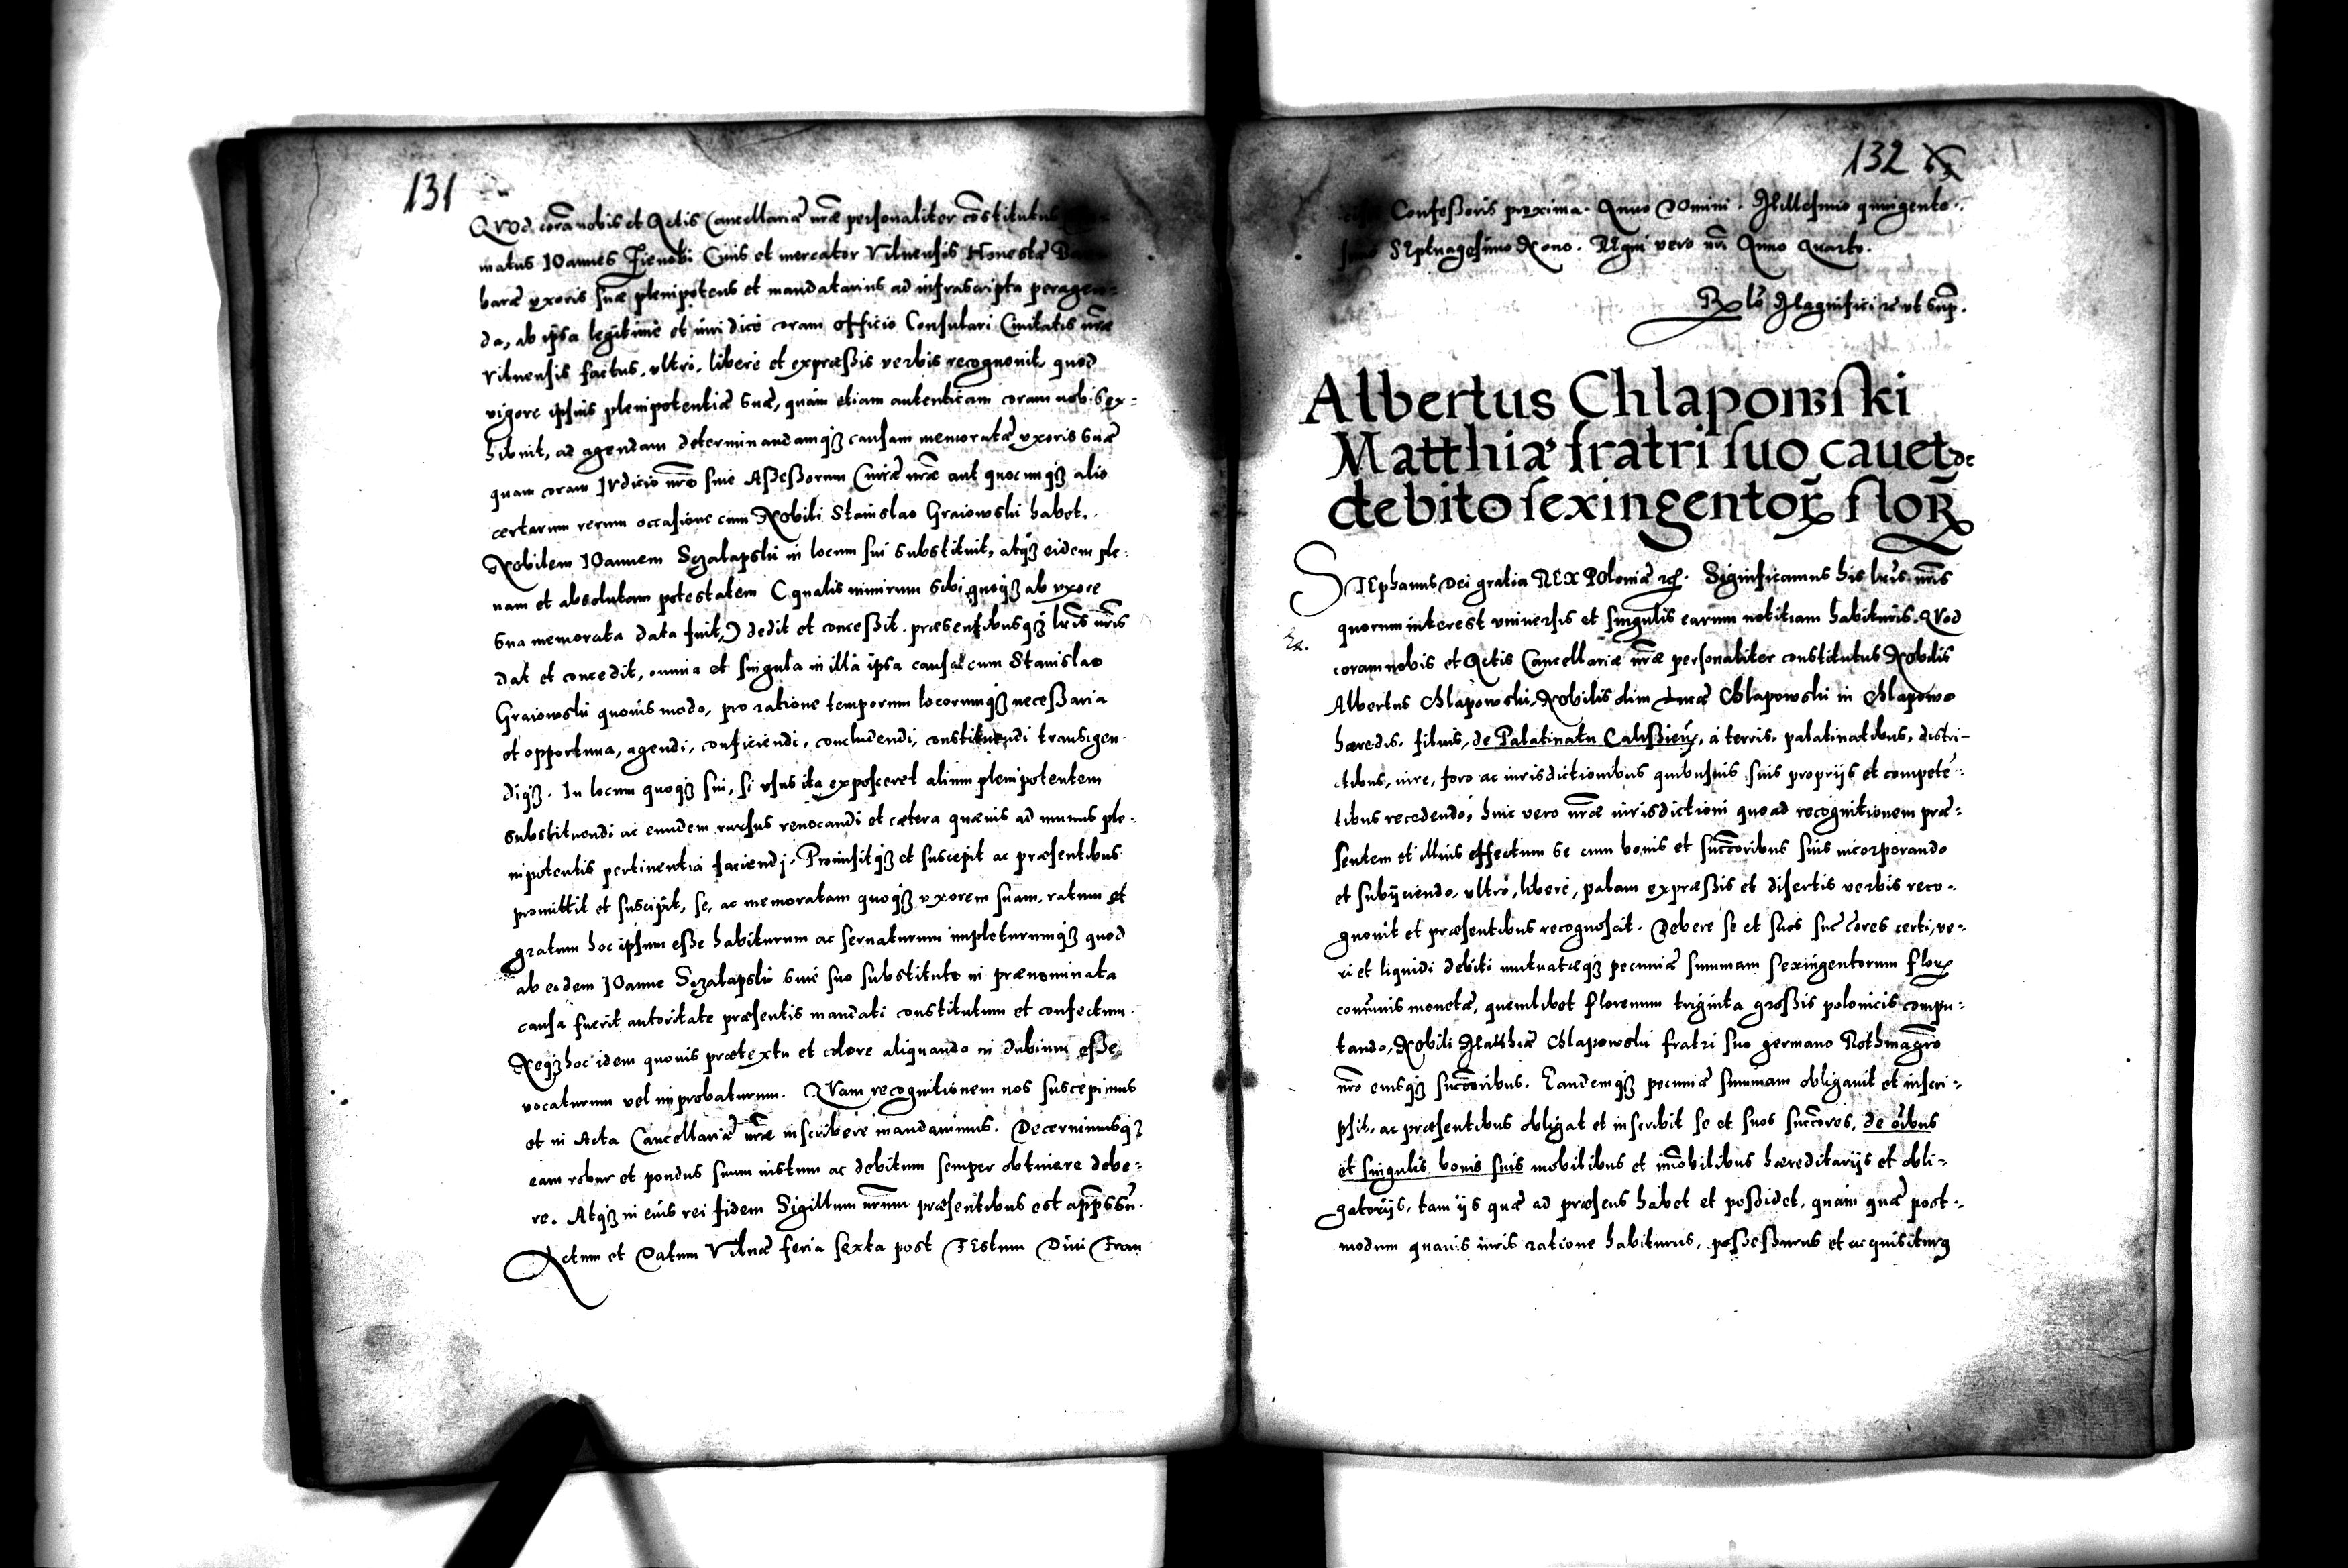 131
QVod corā nobis et Actis Cancellariæ nr̄æ personaliter cōstitutus
matus IOannes Fienobi Ciuis et mercator Vilnensis Honestæ
baræ vxoris suæ plenipotens et mandatarius ad infrascripta peragen=
da, ab ipsa legitimè et iuridicè coram officio Consulari Ciuitatis nr̄æ
Vilnensis factus, vltrò, liberè et expræßis verbis recognouit, quod
vigore ipsius plenipotentiæ suæ, quam etiam autenticam coram nobis ex=
hibuit, ad agendam determinandamqȝ causam memoratæ vxoris suæ
quam coram IVdicio nr̄o siue Aßeßorum Curiæ nr̄æ aut quocunqȝ alio
certarum rerum occasione cum Nobili Stanislao Graiowski habet.
Nobilem IOannem Sczalapski in locum sui substituit, atqȝ eidem ple:
nam et absolutam potestatem (qualis nimirum sibi quoqȝ ab vxore
sua memorata data fuit,) dedit et conceßit. præsentibusqȝ lr̄is nr̄is
dat et concedit, omnia et singula in illa ipsa causa cum Stanislao
Graiowski quouis modo, pro ratione temporum locorumqȝ neceßaria
et opportuna, agendi, conficiendi, concludendi, constituendi transigen-
diqȝ. In locum quoqȝ sui, si vsus ita exposceret alium plenipotentem
substituendi ac eundem rursus reuocandi et cætera quæuis ad munus ple:
nipotentis pertinentia faciendi. Promisitqȝ et suscepit ac præsentibus
promittit et suscipit, se, ac memoratam quoqȝ vxorem suam, ratum et
gratum hoc ipsum eße habiturum ac seruaturum impleturumqȝ quod
ab eodem IOanne Sczalapski siue suo substituto in prænominata
causa fuerit autoritate præsentis mandati constitutum et confectum.
Neqȝ hoc idem quouis prætextu et colore aliquando in dubium eße
vocaturum vel improbaturum. QVam recognitionem nos suscepimus
et in Acta Cancellariæ nr̄æ inscribere mandauimus. Decernimusqȝ
eam robur et pondus suum iustum ac debitum semper obtinere debe=
re. Atqȝ in eius rei fidem Sigillum nr̄um præsentibus est app̄ssū.
Actum et Datum Vilnæ feria sexta post FEstum Diui Fran
132
Confeßoris proxima. Anno DOmini. Millesimo quingente:
simo SEptuagesimo Nono. REgni vero nr̄i Anno Quarto.
Rlō Magnifici rc vt sup̄.
Albertus Chlapowski
Matthiæ fratri suo cauet de
debito sexingentoꝝ floꝝ
STEphanus Dei gratia REX POloniæ rc̄. Significamus his lr̄is nr̄is
quorum interest vniuersis et singulis earum notitiam habituris. QVod
coram nobis et Actis Cancellariæ nr̄æ personaliter constitutus Nobilis
Albertus Chlapowski, Nobilis olim Lucæ Chlapowski in Chlapowo
hæredis, filius, de Palatinatu Calißieñ, à terris, palatinatibus, distri-
ctibus, iure, foro ac iurisdictionibus quibusuis suis proprijs et competē:
tibus recedendo, huic vero nr̄æ iurisdictioni quo ad recognitionem præ=
sentem et illius effectum se cum bonis et succ̄oribus suis incorporando
et subijciendo, vltrò, liberè, palam expræßis et disertis verbis reco-
gnouit et præsentibus recognoscit. Debere se et suos succ̄ores certi, ve=
ri et liquidi debiti mutuatæqȝ pecuniæ summam sexingentorum floꝝ
com̄unis monetæ, quemlibet florenum triginta großis polonicis compu=
tando, Nobili Matthiæ Chlapowski fratri suo germano Rothmagr̄o
nr̄o eiusqȝ succ̄oribus. Eandemqȝ pecuniæ summam obligauit et inscri=
psit, ac præsentibus obligat et inscribit se et suos succ̄ores, de oībus
et singulis bonis suis mobilibus et im̄obilibus hæreditarijs et obli=
gatorijs, tam ijs quæ ad præsens habet et poßidet, quàm quæ post=
modum quauis iuris ratione habiturus, poßeßurus et acquisiturꝯ